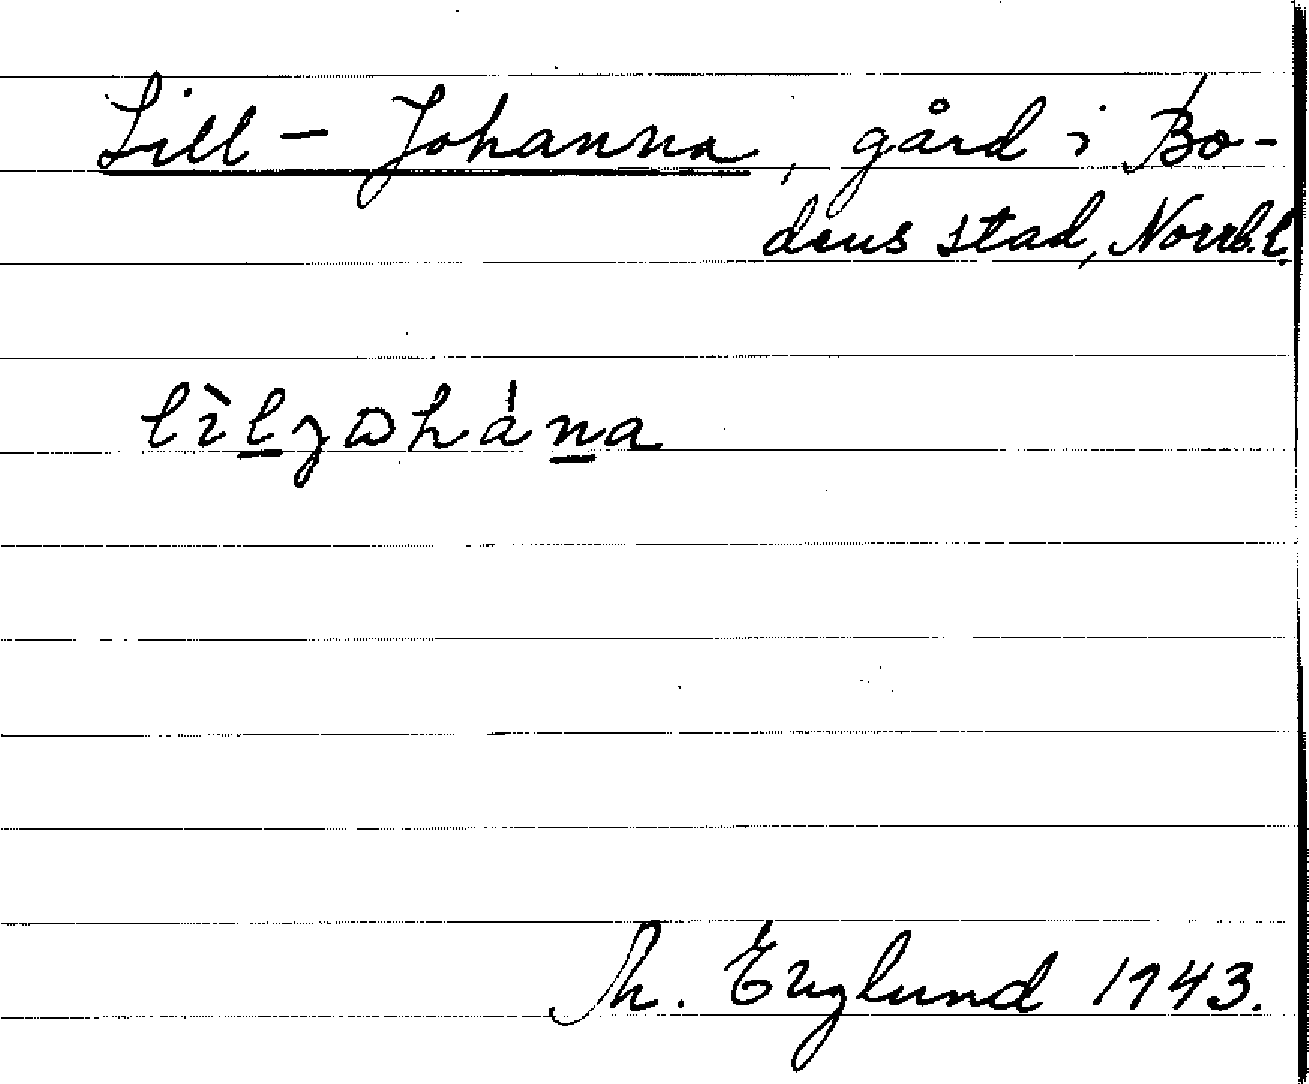 Lill-Johanna, gård i Bo-
dens stad, Norrb.l.
lìl̲jɷhána̲
Th. Englund 1943.